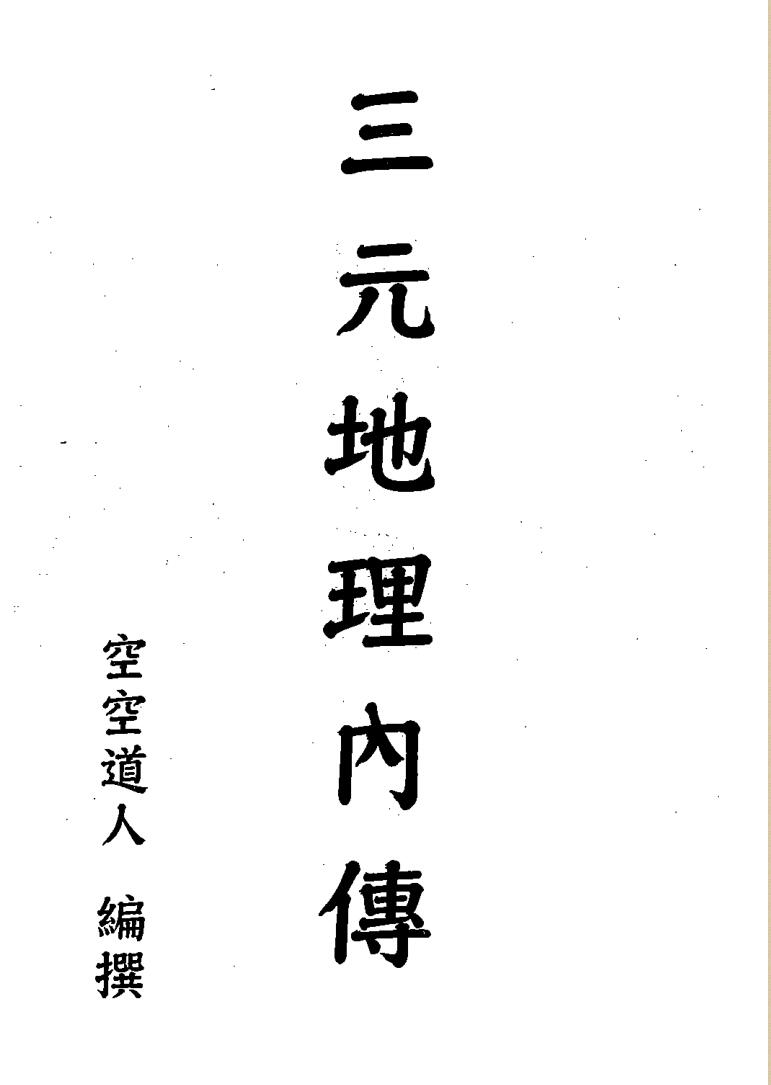 三元地理內傳
空空道人 編撰